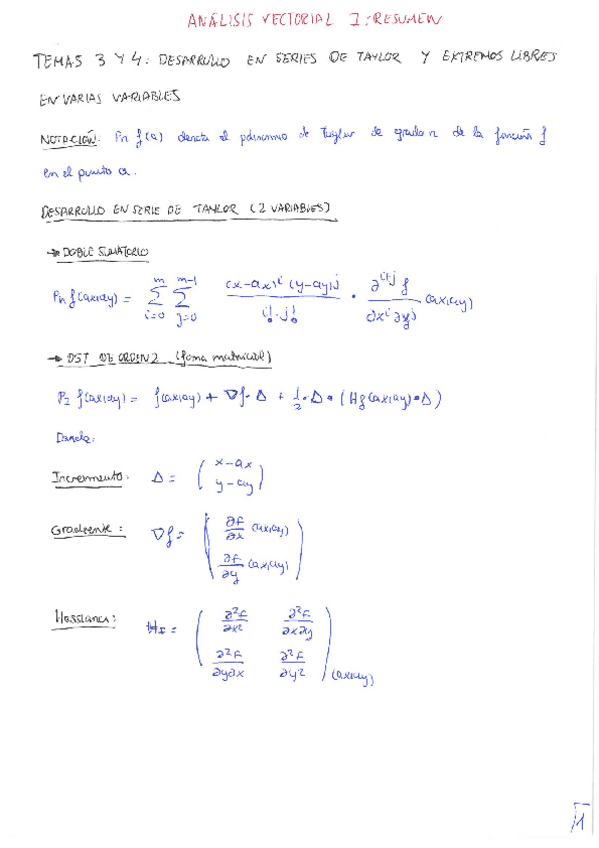 ANÁLISIS VECTORIAL I: RESUMEN
TEMAS 3 Y 4: DESARROLLO EN SERIES DE TAYLOR Y EXTREMOS LIBRES
EN VARIAS VARIABLES
NOTACIÓN: Pn f(a) denota el polinomio de Taylor de grado n de la función f
en el punto a.
DESARROLLO EN SERIE DE TAYLOR (2 VARIABLES)
→ DOBLE SUMATORIO
Pn f(ax,ay) = m Σ i=0 m-i Σ j=0 (x-ax)^i (y-ay)^j / i!·j! · ∂^(i+j) f / ∂x^i ∂y^j (ax,ay)
→ DST DE ORDEN 2 (forma matricial)
P2 f(ax,ay) = f(ax,ay) + ∇f·Δ + 1/2·Δ·(Hf(ax,ay)·Δ)
Donde:
Incremento: Δ = ( x-ax
y-ay )
Gradiente: ∇f = ( ∂f/∂x (ax,ay)
∂f/∂y (ax,ay) )
Hessiana: Hf = ( ∂²f/∂x² ∂²f/∂x∂y
∂²f/∂y∂x ∂²f/∂y² ) (ax,ay)
1